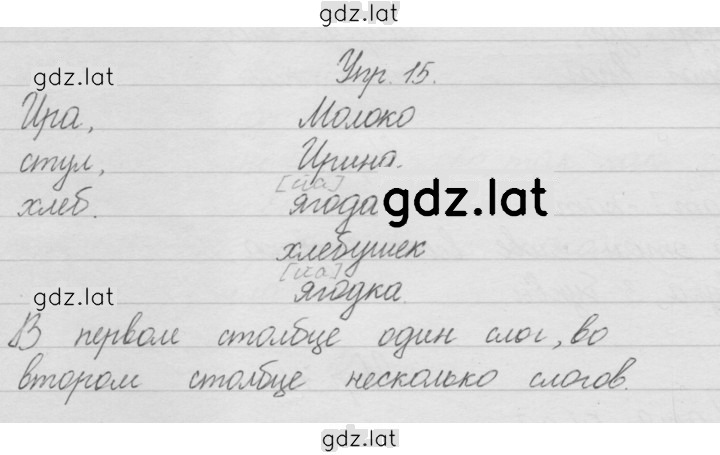 gdz.lat
gdz.lat
Упр. 15.
Ира, Молоко
стул, Ирина.
[йа]
хлеб. ягода gdz.lat
хлебушек
[йа]
gdz.lat ягодка
В первом столбце один слог, во
втором столбце несколько слогов.
gdz.lat